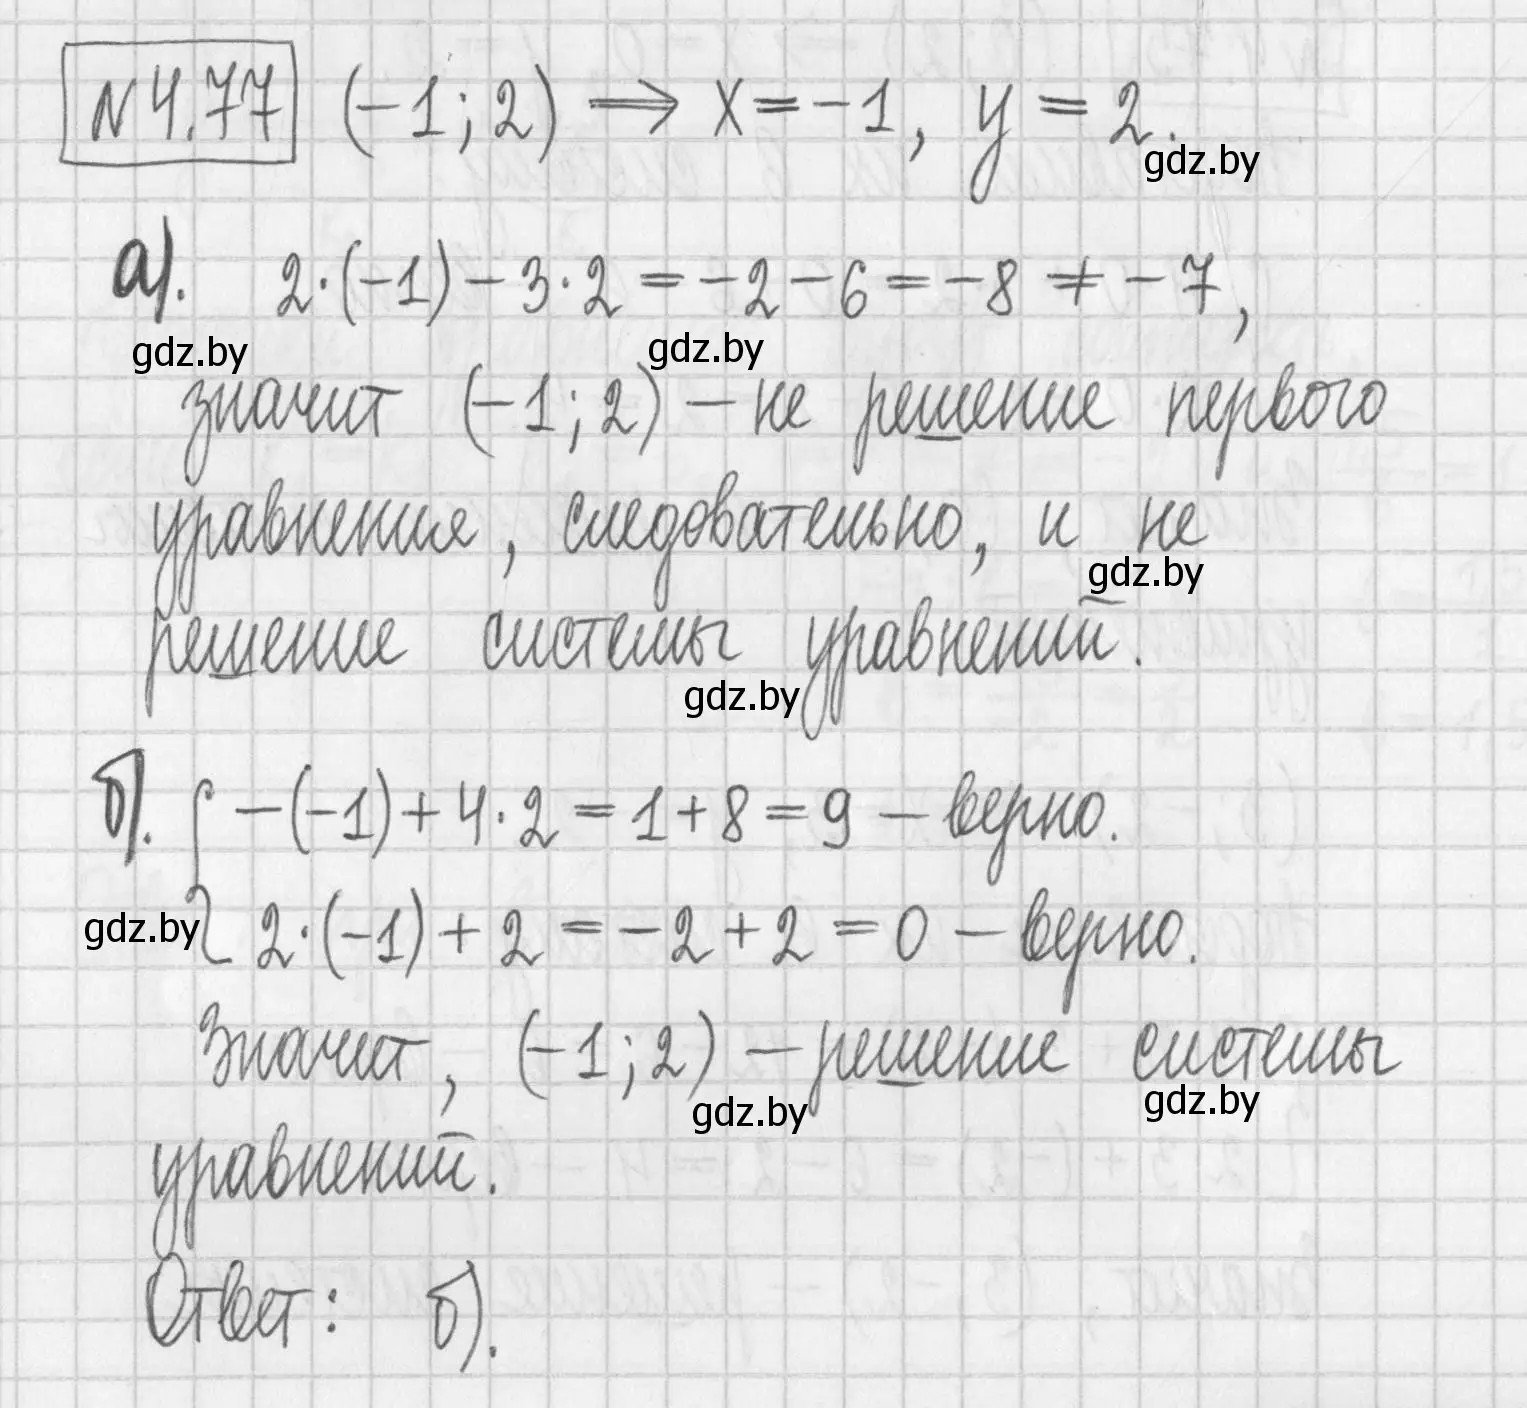 №4.77 (-1; 2) ⟹ x = -1, y = 2.
gdz.by
а). 2·(-1) - 3·2 = -2 - 6 = -8 ≠ -7,
gdz.by gdz.by
значит (-1; 2) - не решение первого
уравнения, следовательно, и не
gdz.by
решение системы уравнений.
gdz.by
б). { -(-1) + 4·2 = 1 + 8 = 9 - верно.
gdz.by 2·(-1) + 2 = -2 + 2 = 0 - верно.
Значит, (-1; 2) - решение системы
gdz.by gdz.by
уравнений.
Ответ: б).